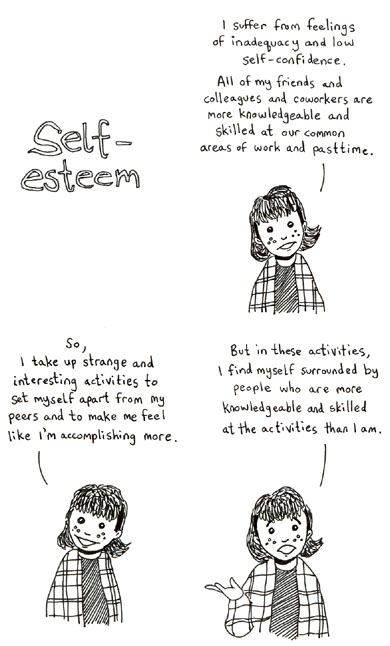 Self-
esteem
I suffer from feelings
of inadequacy and low
self-confidence.
All of my friends and
colleagues and coworkers are
more knowledgeable and
skilled at our common
areas of work and pasttime.
So,
I take up strange and
interesting activities to
set myself apart from my
peers and to make me feel
like I'm accomplishing more.
But in these activities,
I find myself surrounded by
people who are more
knowledgeable and skilled
at the activities than I am.